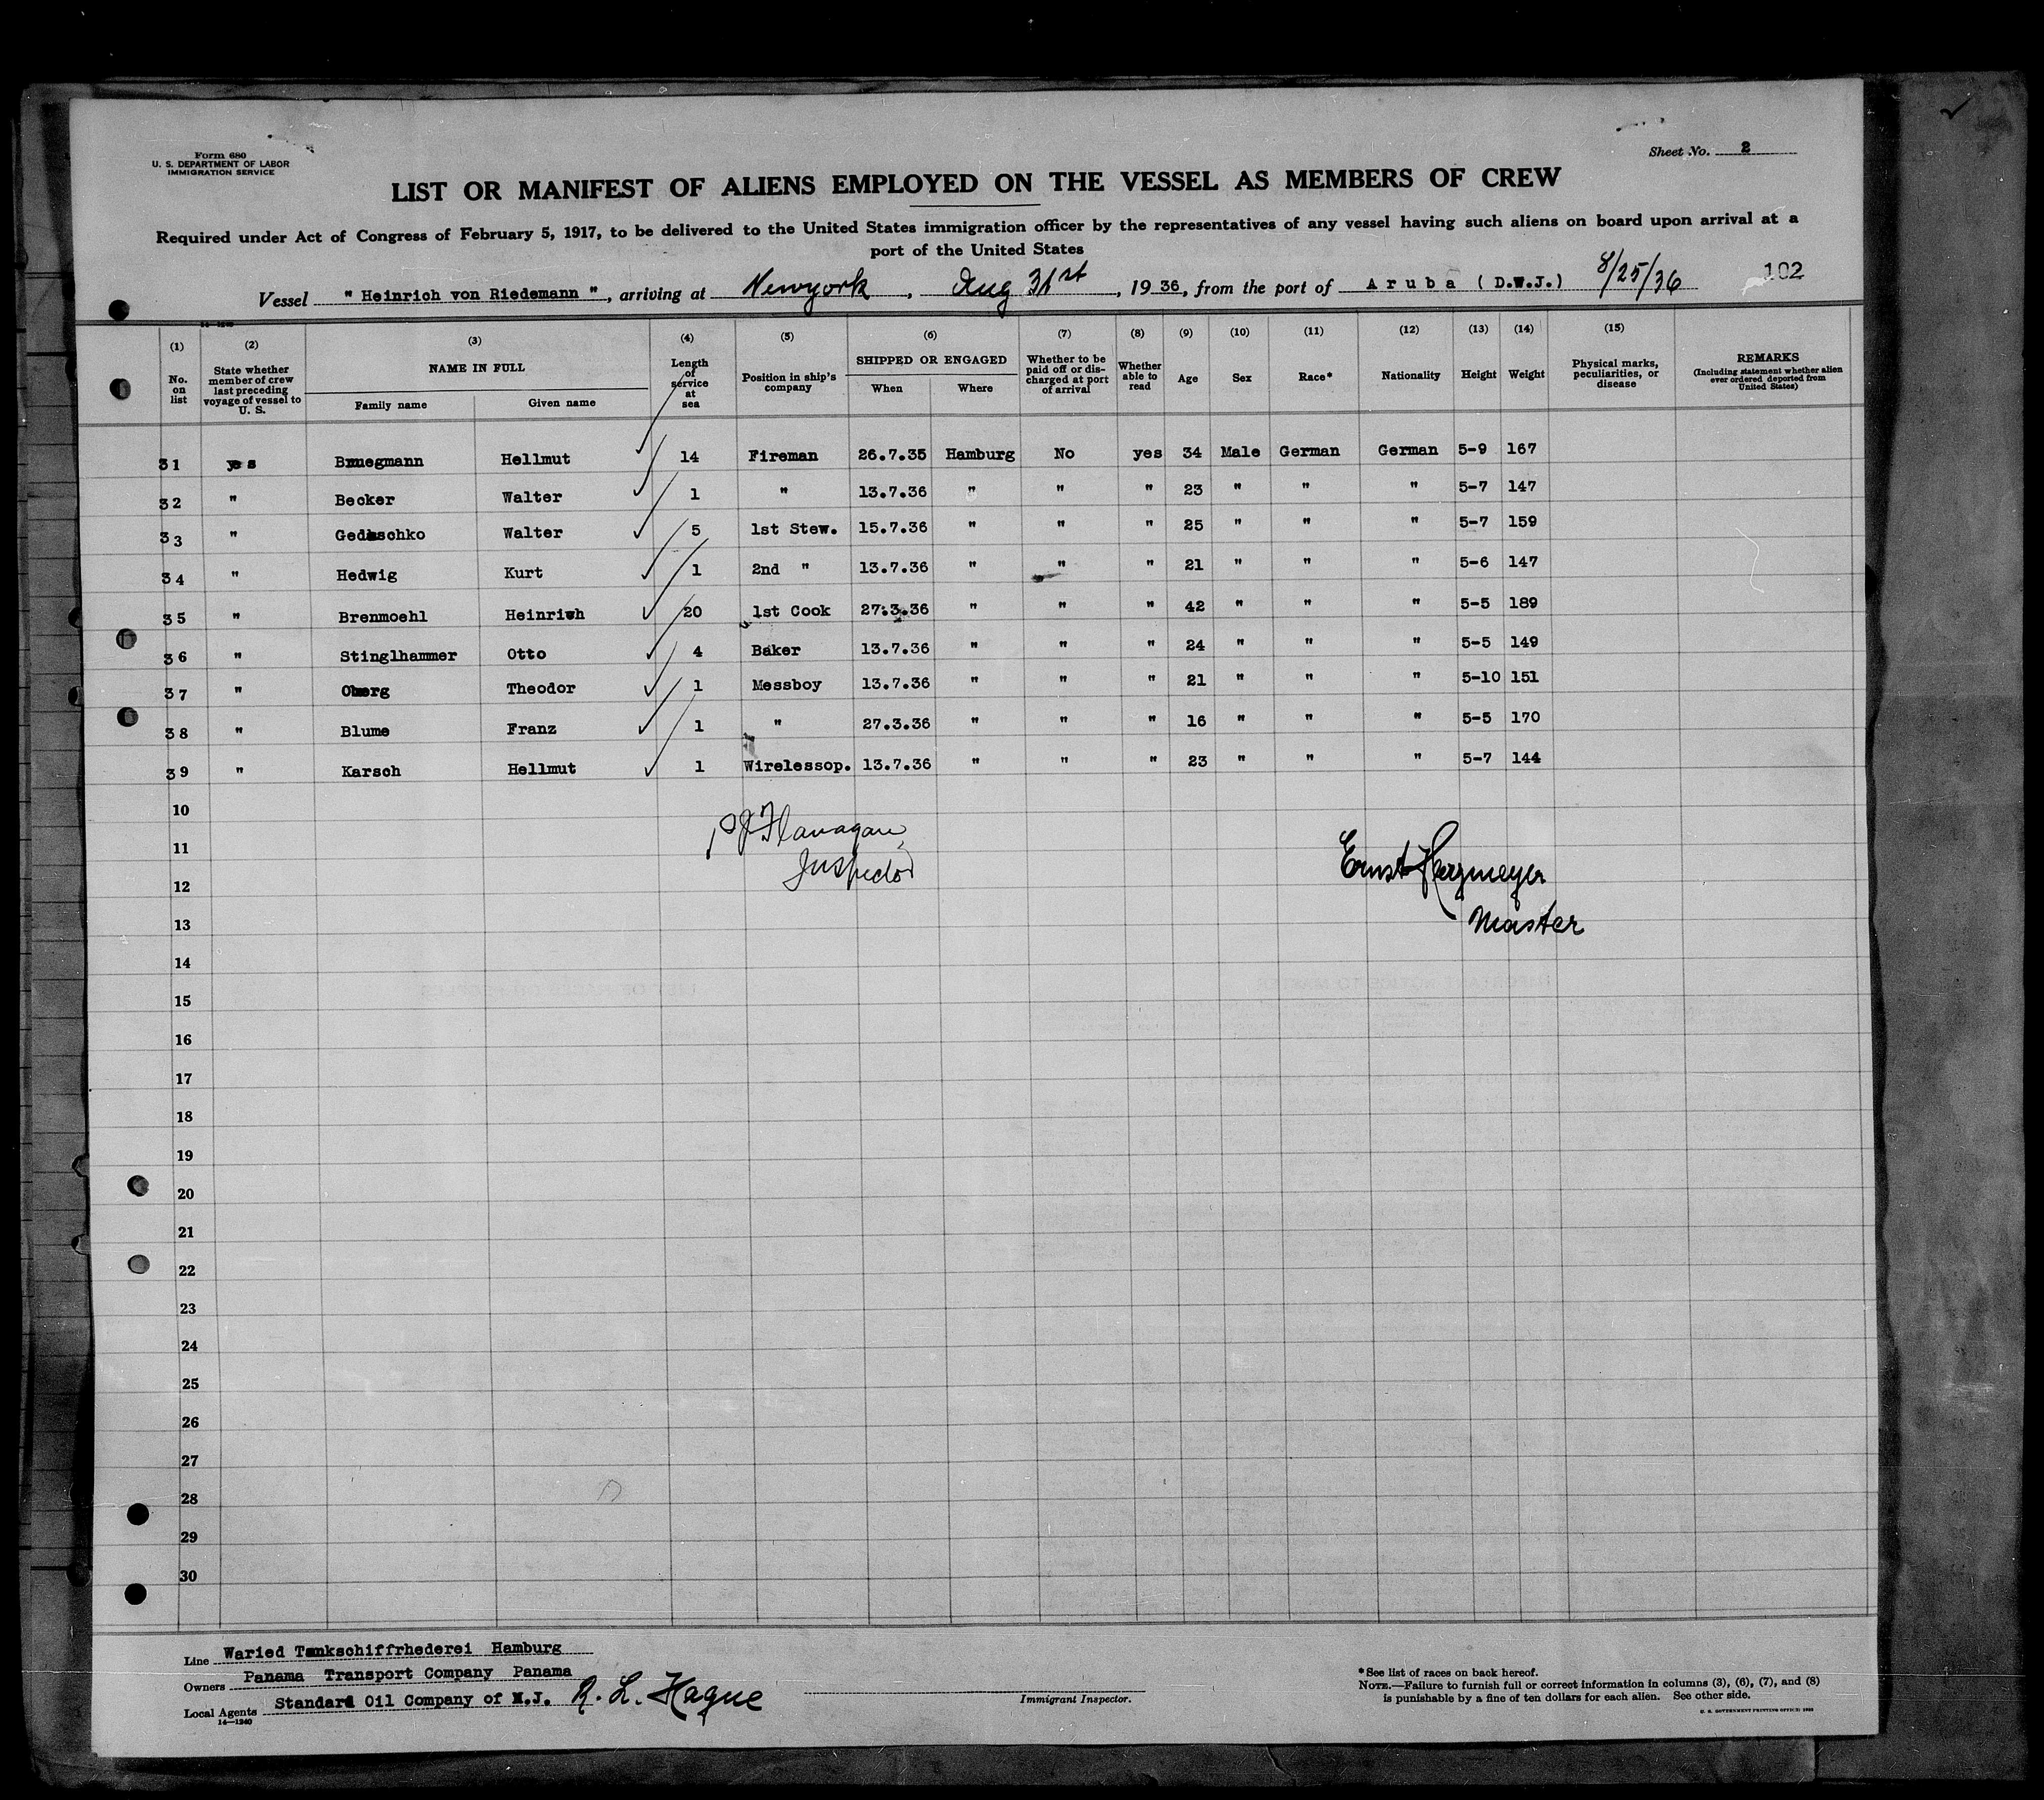 Form 680
U. S. DEPARTMENT OF LABOR
IMMIGRATION SERVICE
Sheet No. 2
LIST OR MANIFEST OF ALIENS EMPLOYED ON THE VESSEL AS MEMBERS OF CREW
Required under Act of Congress of February 5, 1917, to be delivered to the United States immigration officer by the representatives of any vessel having such aliens on board upon arrival at a
port of the United States
Vessel " Heinrich von Riedemann ", arriving at Newyork, Aug 31st, 1936, from the port of Aruba (D.W.J.) 8/25/36 102
(1) (2) (3) (4) (5) (6) (7) (8) (9) (10) (11) (12) (13) (14) (15)
No. on list
State whether member of crew last preceding voyage of vessel to U. S.
NAME IN FULL
Family name
Given name
Length of service at sea
Position in ship's company
SHIPPED OR ENGAGED
When
Where
Whether to be paid off or discharged at port of arrival
Whether able to read
Age
Sex
Race*
Nationality
Height
Weight
Physical marks, peculiarities, or disease
REMARKS
(Including statement whether alien ever ordered deported from United States)
31 yes Bruegmann Hellmut 14 Fireman 26.7.35 Hamburg No yes 34 Male German German 5-9 167
32 " Becker Walter 1 " 13.7.36 " " " 23 " " " 5-7 147
33 " Gedaschko Walter 5 1st Stew. 15.7.36 " " " 25 " " " 5-7 159
34 " Hedwig Kurt 1 2nd " 13.7.36 " " " 21 " " " 5-6 147
35 " Brenmoehl Heinrich 20 1st Cook 27.3.36 " " " 42 " " " 5-5 189
36 " Stinglhammer Otto 4 Baker 13.7.36 " " " 24 " " " 5-5 149
37 " Theodor 1 Messboy 13.7.36 " " " 21 " " " 5-10 151
38 " Blume Franz 1 " 27.3.36 " " " 16 " " " 5-5 170
39 " Karsch Hellmut 1 Wirelessop. 13.7.36 " " " 23 " " " 5-7 144
10
11
12
13
14
15
16
17
18
19
20
21
22
23
24
25
26
27
28
29
30
P J Flanagan
Inspector
Ernst Hegmeyer
Master
Line Waried Tankschiffrhederei Hamburg
Owners Panama Transport Company Panama
Local Agents Standard Oil Company of N.J. R. L. Hague
14—1240
Immigrant Inspector.
*See list of races on back hereof.
NOTE.—Failure to furnish full or correct information in columns (3), (6), (7), and (8)
is punishable by a fine of ten dollars for each alien. See other side.